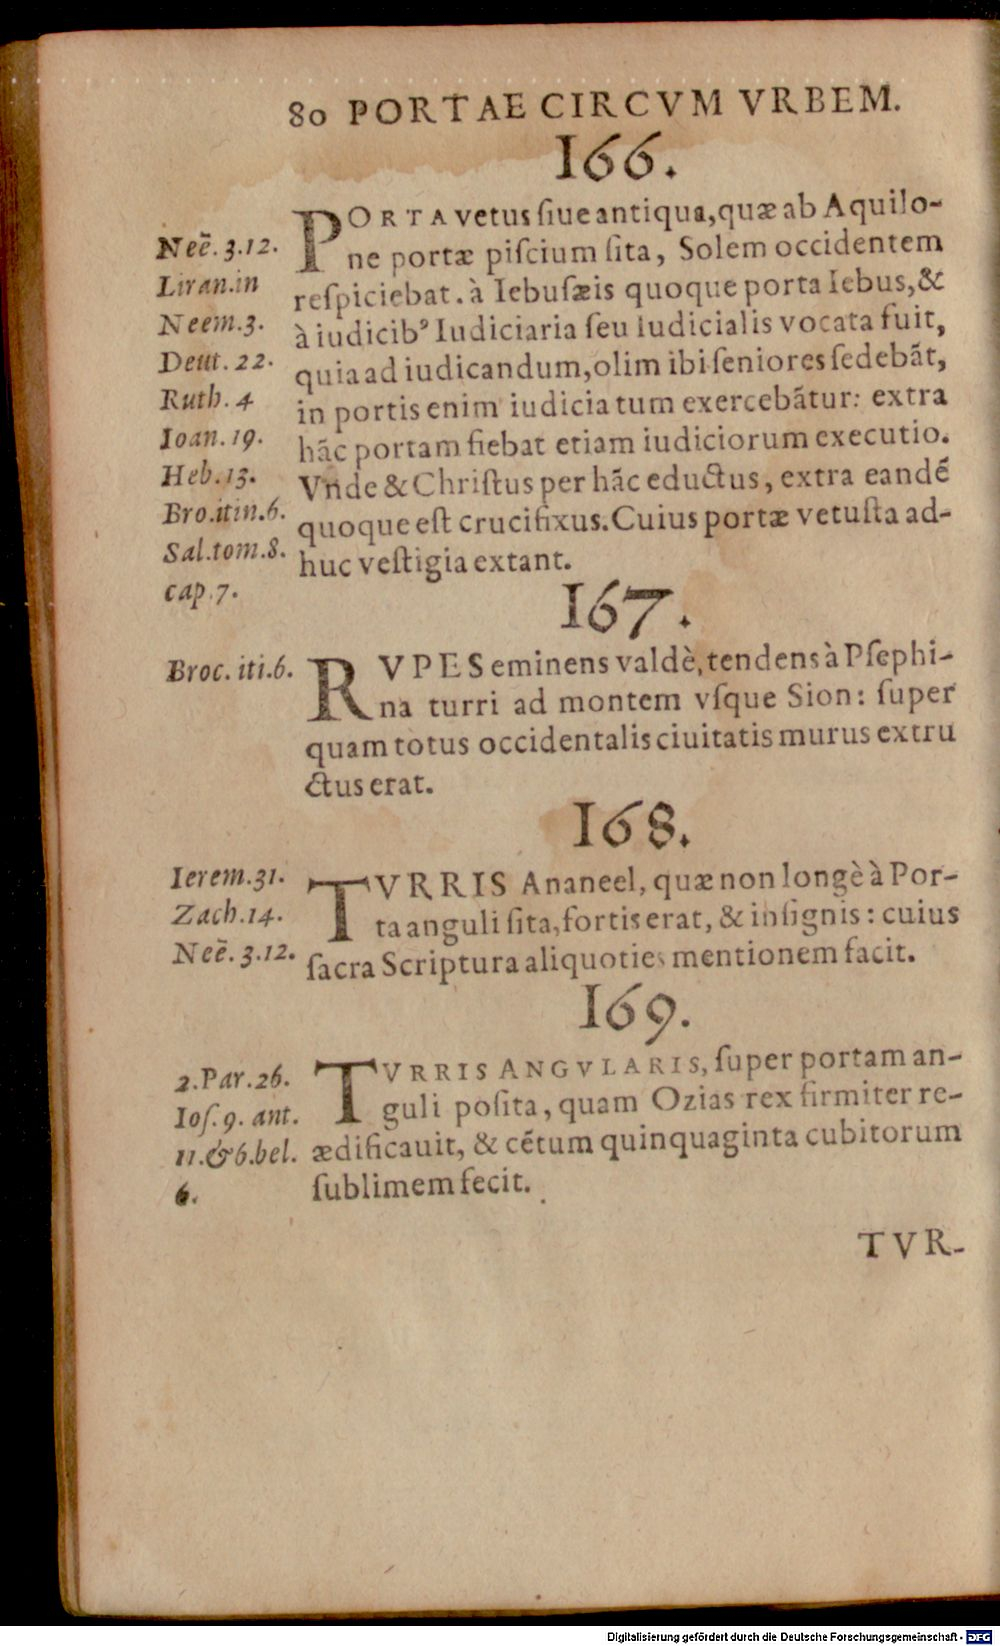 80 PORTAE CIRCVM VRBEM.
166.
Neē. 3.12.
Liran.in
Neem.3.
Deut. 22.
Ruth. 4
Ioan. 19.
Heb. 13.
Bro.itin.6.
Sal.tom.8.
cap.7.
PORTA vetus ſiue antiqua, quæ ab Aquilo-
ne portæ piſcium ſita, Solem occidentem
reſpiciebat. à Iebuſæis quoque porta Iebus, &
à iudicibꝰ Iudiciaria ſeu iudicialis vocata fuit,
quia ad iudicandum, olim ibi ſeniores ſedebãt,
in portis enim iudicia tum exercebãtur: extra
hãc portam fiebat etiam iudiciorum executio.
Vnde & Chriſtus per hãc eductus, extra eandẽ
quoque eſt crucifixus. Cuius portæ vetuſta ad-
huc veſtigia extant.
167.
Broc. iti.6.
RVPES eminens valdè, tendens à Pſephi-
na turri ad montem vſque Sion: ſuper
quam totus occidentalis ciuitatis murus extru
ctus erat.
168.
Ierem.31.
Zach.14.
Neē. 3.12.
TVRRIS Ananeel, quæ non longè à Por-
ta anguli ſita, fortis erat, & inſignis: cuius
ſacra Scriptura aliquoties mentionem facit.
169.
2.Par.26.
Ioſ. 9. ant.
11.&6.bel.
6.
TVRRIS ANGVLARIS, ſuper portam an-
guli poſita, quam Ozias rex firmiter re-
ædificauit, & cẽtum quinquaginta cubitorum
ſublimem fecit.
TVR-
Digitalisierung gefördert durch die Deutsche Forschungsgemeinschaft - DFG